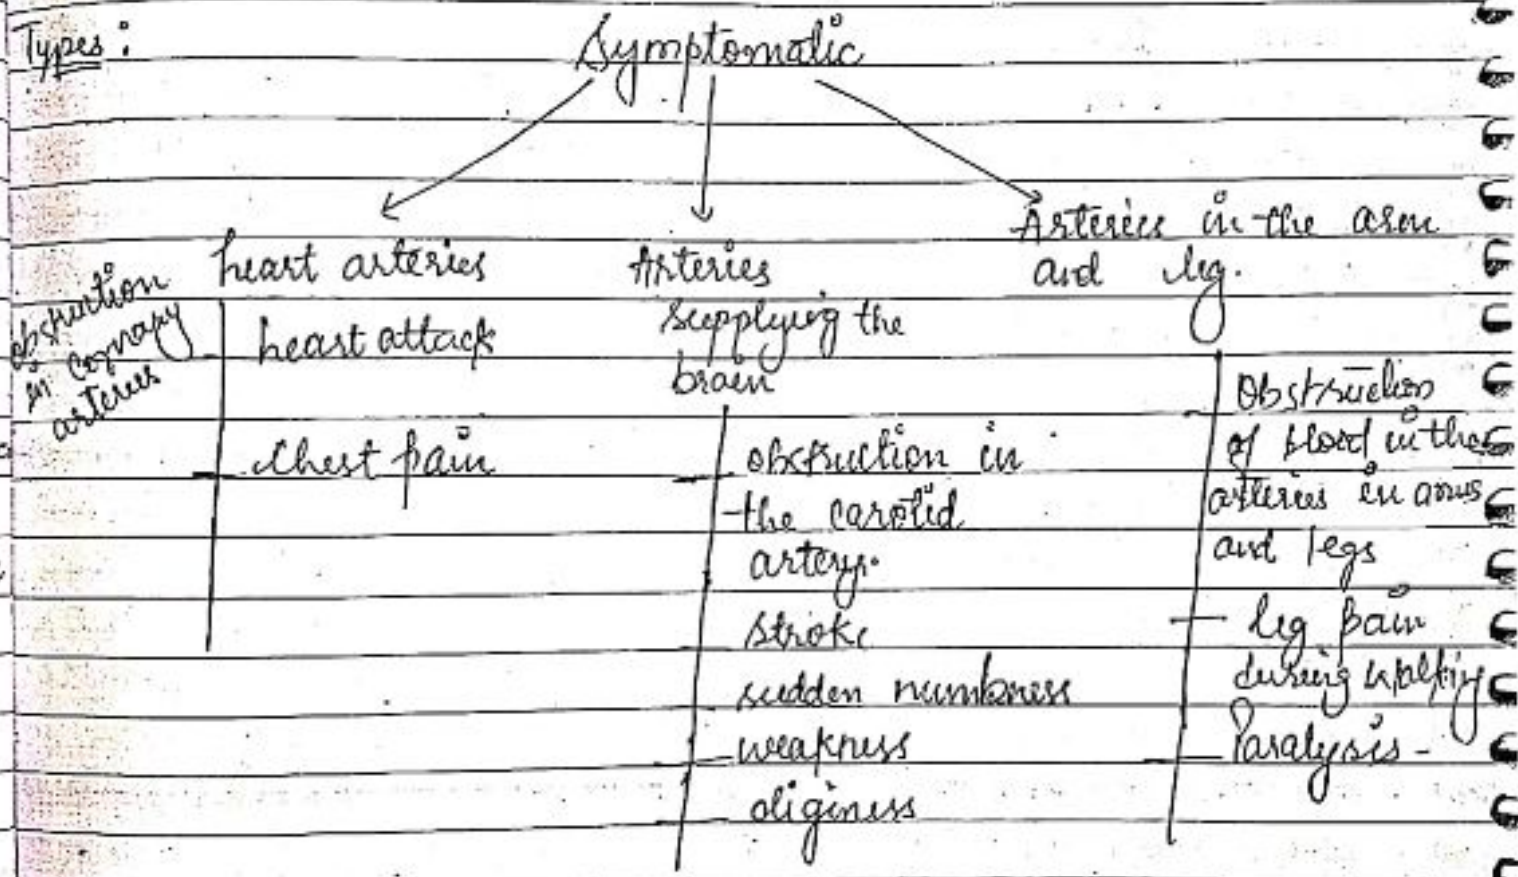 Types:
Symptomatic
heart arteries
obstruction
in
arteries
heart attack
Chest pain
Arteries
supplying the
brain
obstruction in
the carotid
artery.
stroke
sudden numbness
weakness
diginess
Arteries in the arm
and leg.
Obstruction
of blood in the
arteries in arms
and legs
leg pain
during walking
Paralysis -